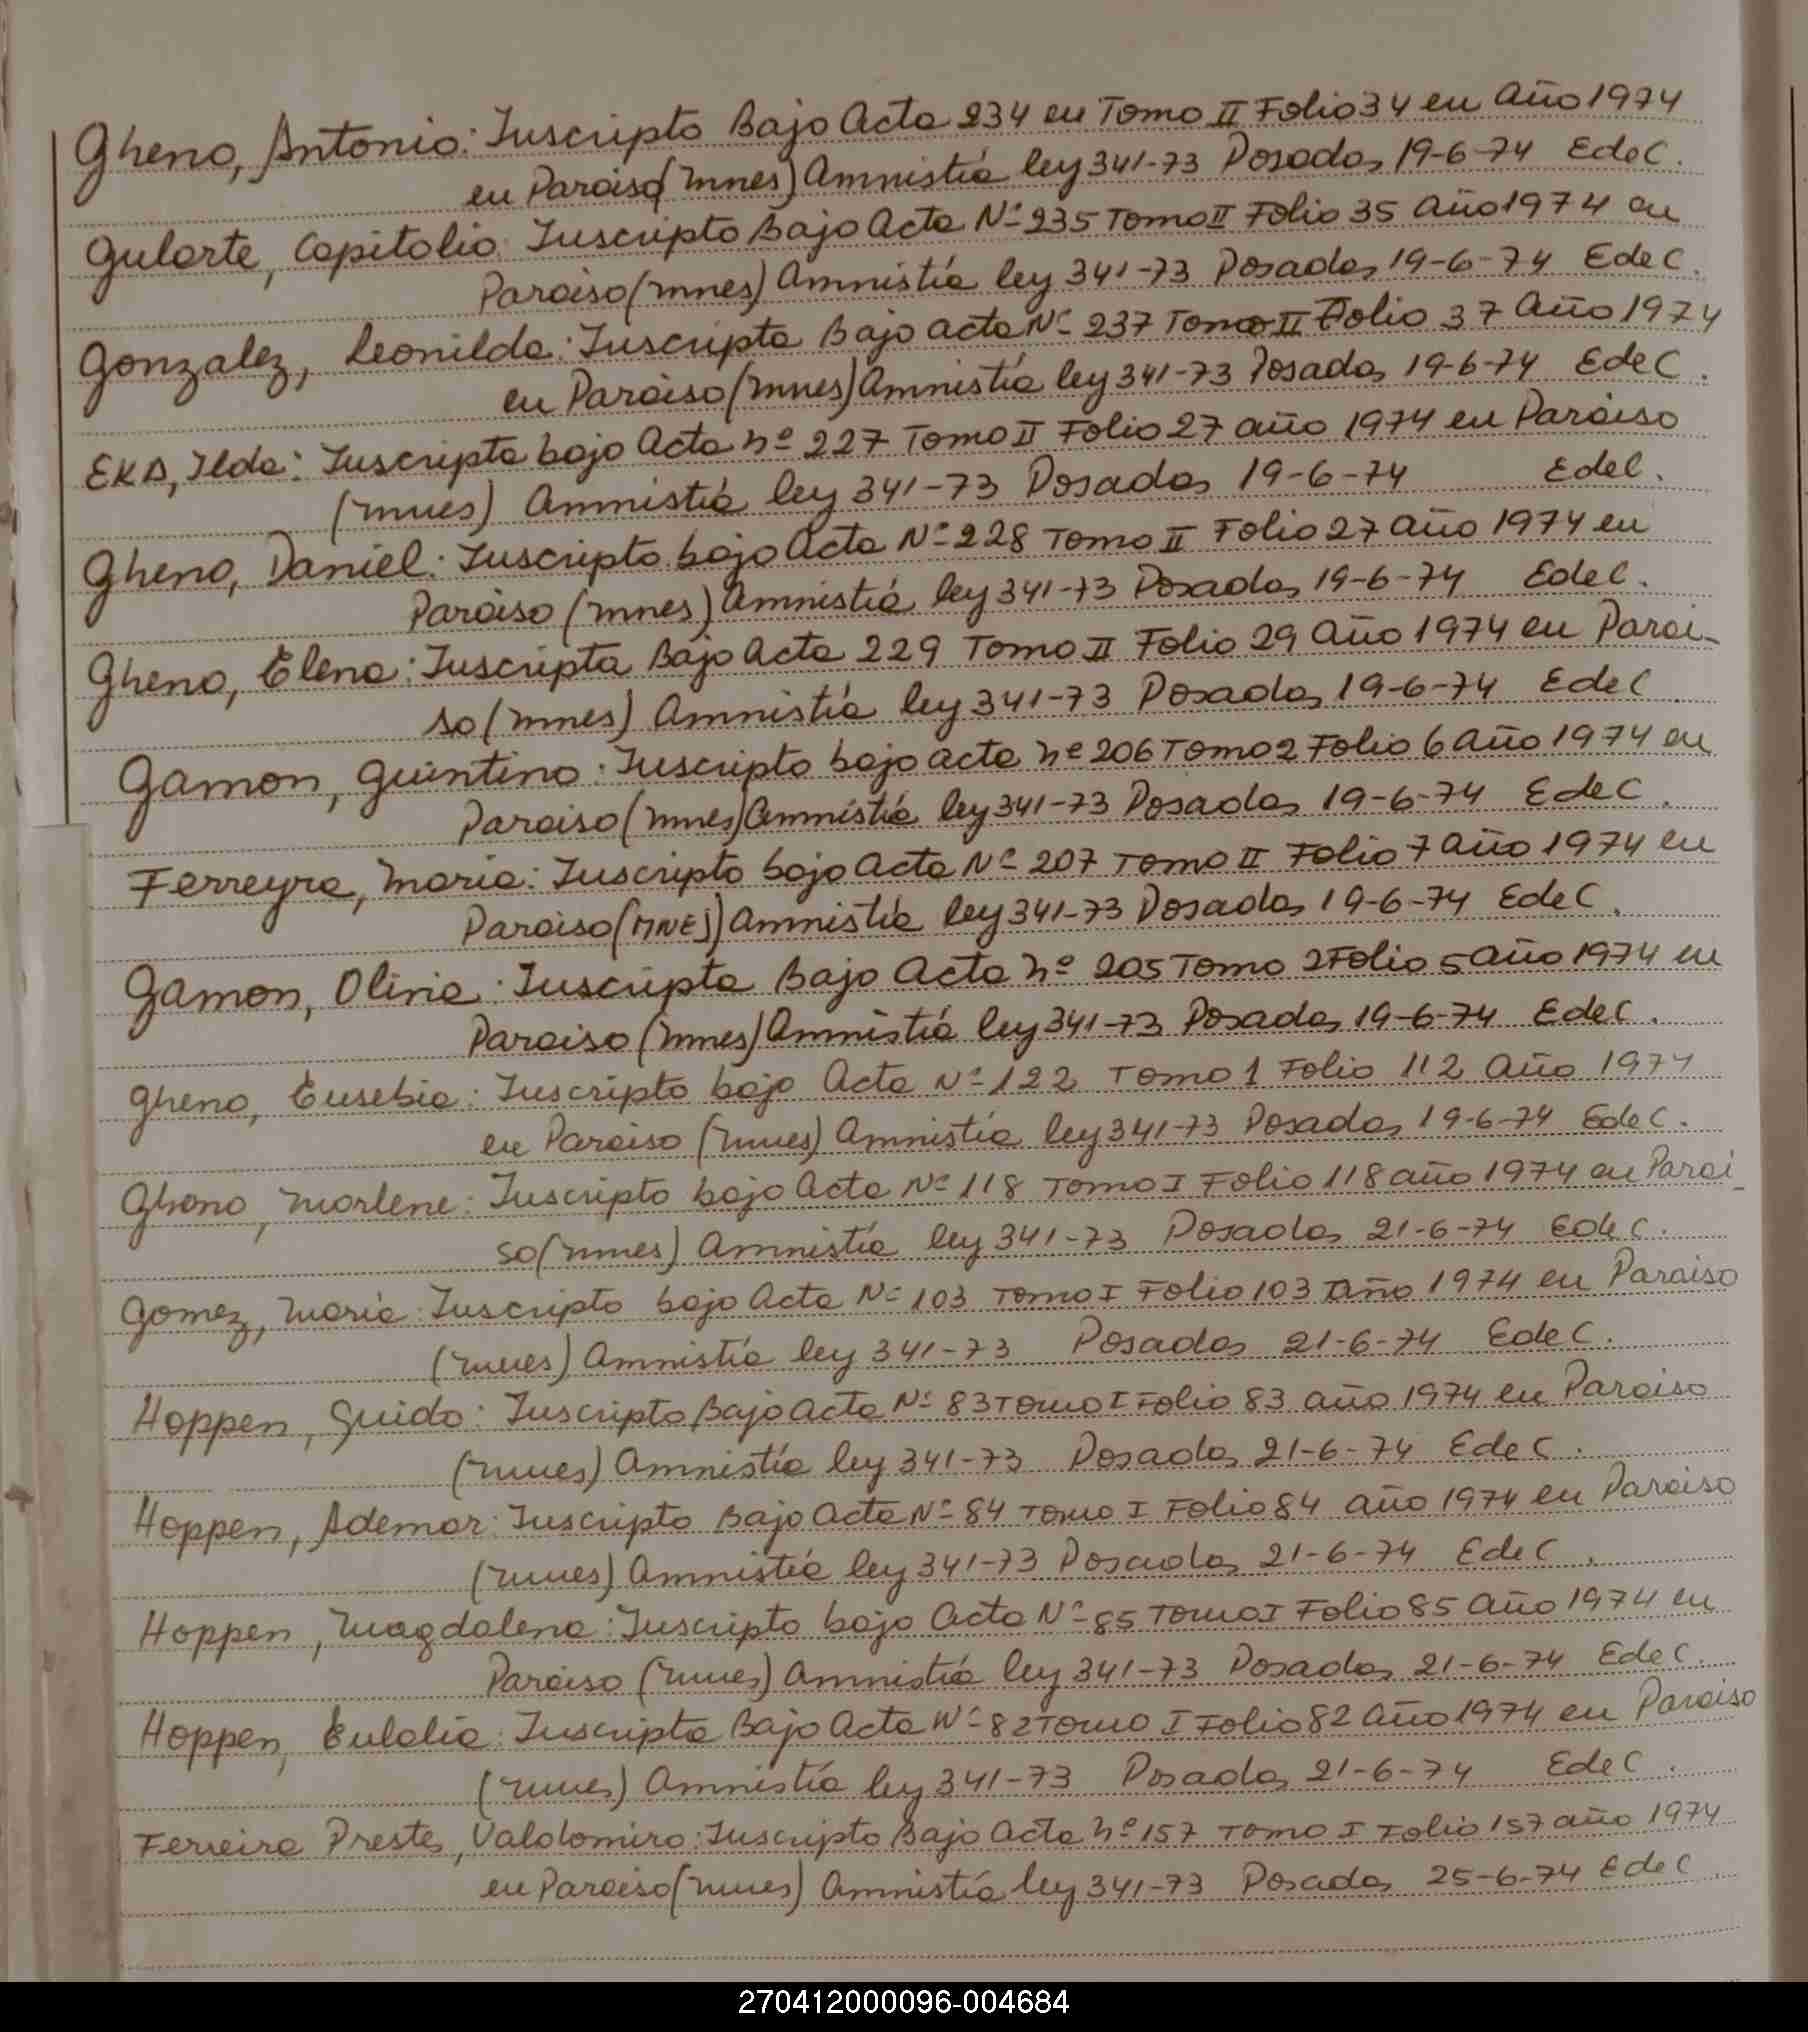 Gheno, Antonio: Inscripto Bajo Acta 234 en Tomo II Folio 34 en Año 1974
en Paraiso (Mnes) Amnistía ley 341-73 Posadas 19-6-74 EdeC.
Gularte, Capitolio: Inscripto Bajo Acta Nº 235 Tomo II Folio 35 Año 1974 en
Paraiso (Mnes) Amnistía ley 341-73 Posadas 19-6-74 EdeC.
Gonzalez, Leonilda: Inscripta Bajo acta Nº 237 Tomo II Folio 37 Año 1974
en Paraiso (Mnes) Amnistía ley 341-73 Posadas 19-6-74 EdeC.
EKA, Ilda: Inscripta bajo Acta nº 227 Tomo II Folio 27 año 1974 en Paraiso
(Mnes) Amnistía ley 341-73 Posadas 19-6-74 EdeC.
Gheno, Daniel: Inscripto bajo Acta Nº 228 Tomo II Folio 27 Año 1974 en
Paraiso (Mnes) Amnistía ley 341-73 Posadas 19-6-74 EdeC.
Gheno, Elena: Inscripta Bajo Acta 229 Tomo II Folio 29 Año 1974 en Parai-
so (Mnes) Amnistía ley 341-73 Posadas 19-6-74 EdeC
Gamon, Quintino: Inscripto bajo acta nº 206 Tomo 2 Folio 6 Año 1974 en
Paraiso (Mnes) Amnistía ley 341-73 Posadas 19-6-74 EdeC.
Ferreyra, Maria: Inscripto bajo Acta Nº 207 Tomo II Folio 7 Año 1974 en
Paraiso (MNES) Amnistía ley 341-73 Posadas 19-6-74 EdeC.
Gamon, Oliria: Inscripta Bajo Acta nº 205 Tomo 2 Folio 5 Año 1974 en
Paraiso (Mnes) Amnistía ley 341-73 Posadas 19-6-74 EdeC.
Gheno, Eusebia: Inscripto bajo Acta Nº 122 Tomo 1 Folio 112 Año 1974
en Paraiso (Mnes) Amnistía ley 341-73 Posadas 19-6-74 EdeC.
Gheno, Marlene: Inscripto bajo Acta Nº 118 Tomo I Folio 118 año 1974 en Parai-
so (Mnes) Amnistía ley 341-73 Posadas 21-6-74 EdeC.
Gomez, Maria: Inscripto bajo Acta Nº 103 Tomo I Folio 103 Año 1974 en Paraiso
(Mnes) Amnistía ley 341-73 Posadas 21-6-74 EdeC.
Hoppen, Guido: Inscripto Bajo Acta Nº 83 Tomo I Folio 83 año 1974 en Paraiso
(Mnes) Amnistía ley 341-73 Posadas 21-6-74 EdeC.
Hoppen, Ademar: Inscripto Bajo Acta Nº 84 Tomo I Folio 84 año 1974 en Paraiso
(Mnes) Amnistía ley 341-73 Posadas 21-6-74 EdeC.
Hoppen, Magdalena: Inscripto bajo Acta Nº 85 Tomo I Folio 85 Año 1974 en
Paraiso (Mnes) Amnistía ley 341-73 Posadas 21-6-74 EdeC.
Hoppen, Eulalia: Inscripta Bajo Acta Nº 82 Tomo I Folio 82 Año 1974 en Paraiso
(Mnes) Amnistía ley 341-73 Posadas 21-6-74 EdeC.
Ferreira Prestes, Valdomiro: Inscripto Bajo Acta nº 157 Tomo I Folio 157 año 1974
en Paraiso (Mnes) Amnistía ley 341-73 Posadas 25-6-74 EdeC.
270412000096-004684